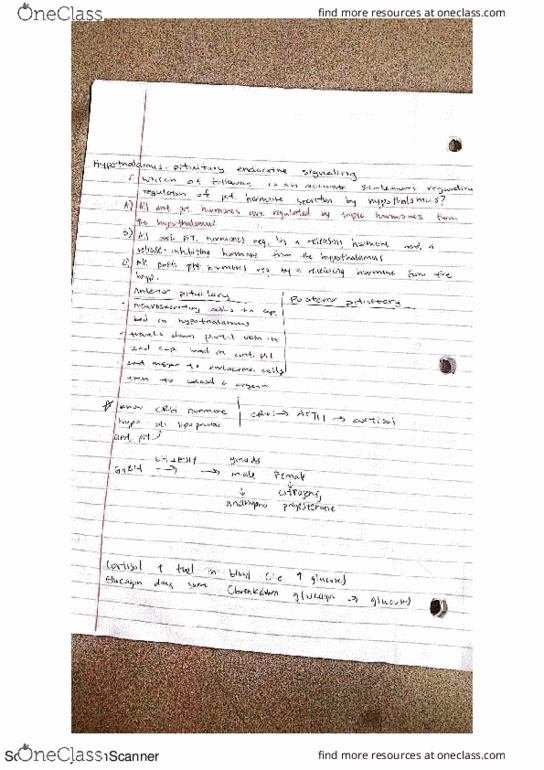 OneClass
find more resources at oneclass.com
Hypothalamus-pituitary endocrine signaling
1. which of following is an accurate statement regarding
regulation of pit. hormone secretion by hypothalamus?
A) All ant pit. hormones are regulated by tropic hormones from
the hypothalamus
B) All ant pit. hormones reg. by a releasing hormone and a
release-inhibiting hormone from the hypothalamus
C) All post pit hormones reg by a releasing hormone from the
hyp.
Anterior pituitary
Posterior pituitary
neurosecretory cells to cap
bed in hypothalamus
travels down portal vein to
2nd cap bed in ant. pit
2nd to endocrine cells
to organ
know CRH hormone
CRH → ACTH → cortisol
hypo
ant pit
LH + FSH gonads
GnRH → → male Female
↓ ↓
estrogens,
androgens progesterone
Cortisol ↑ fuel in blood (i.e ↑ glucose)
Glucagon does same (breakdown → glucose)
OneClass
Scanner
find more resources at oneclass.com